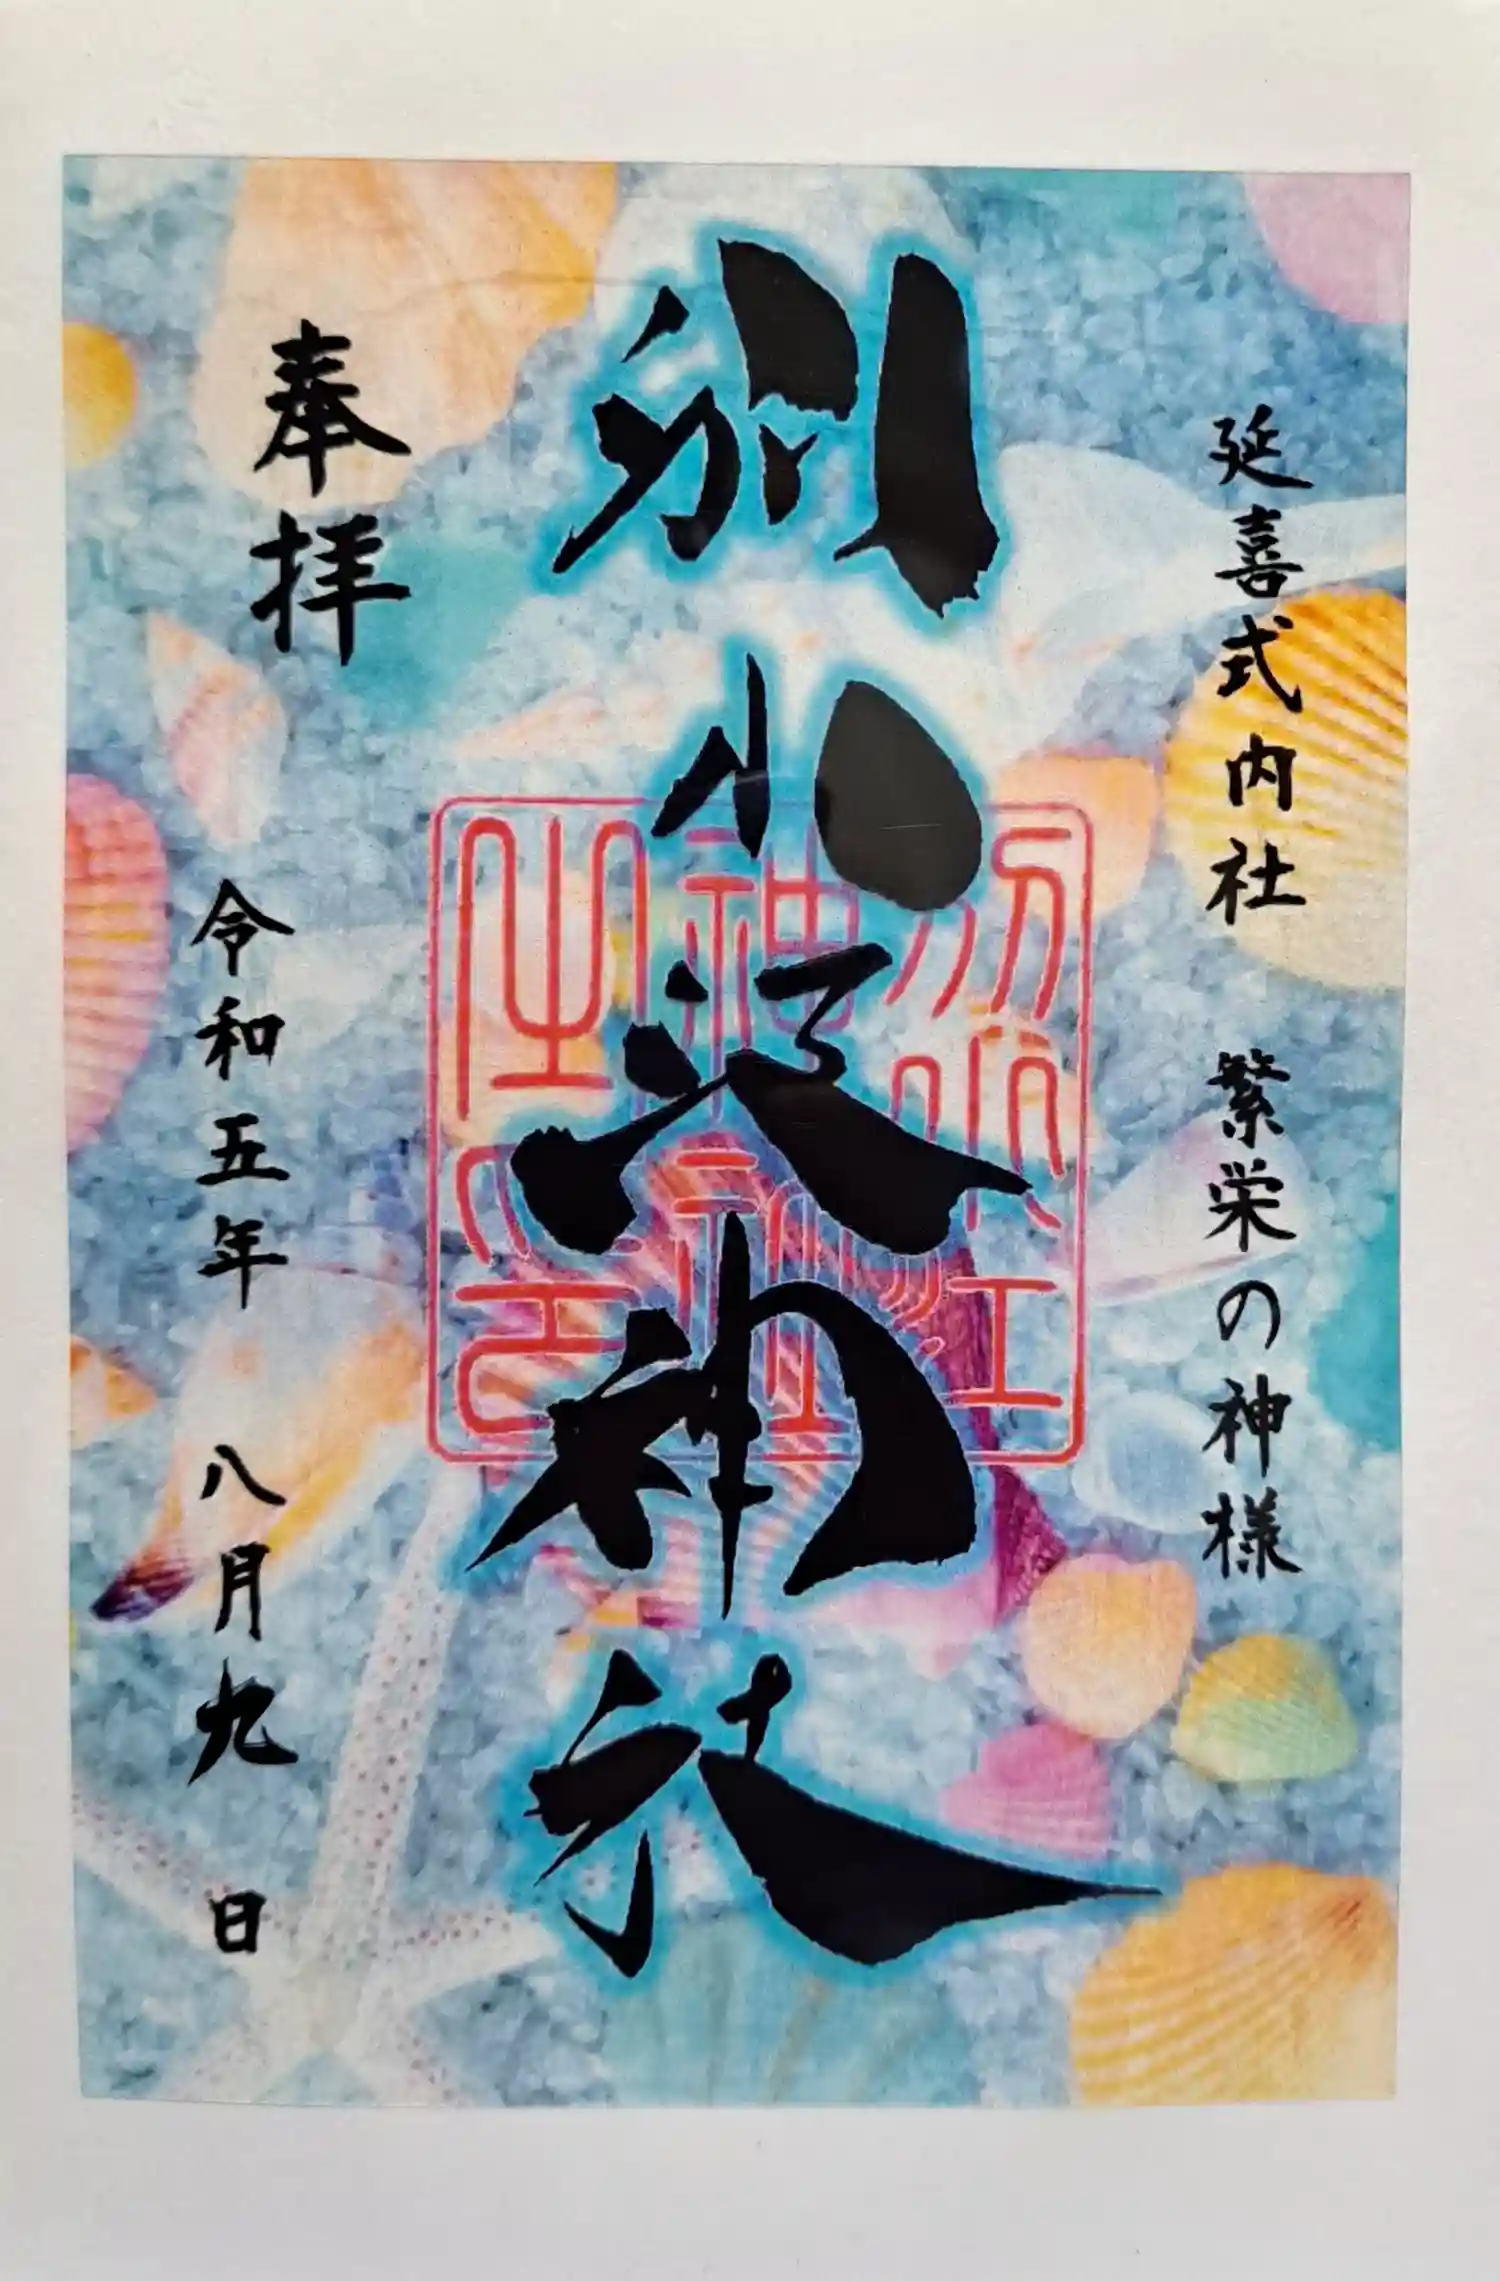 延喜式内社 繁栄の神様
別小江神社
奉拝
令和五年 八月九日
別小江
神社
之印